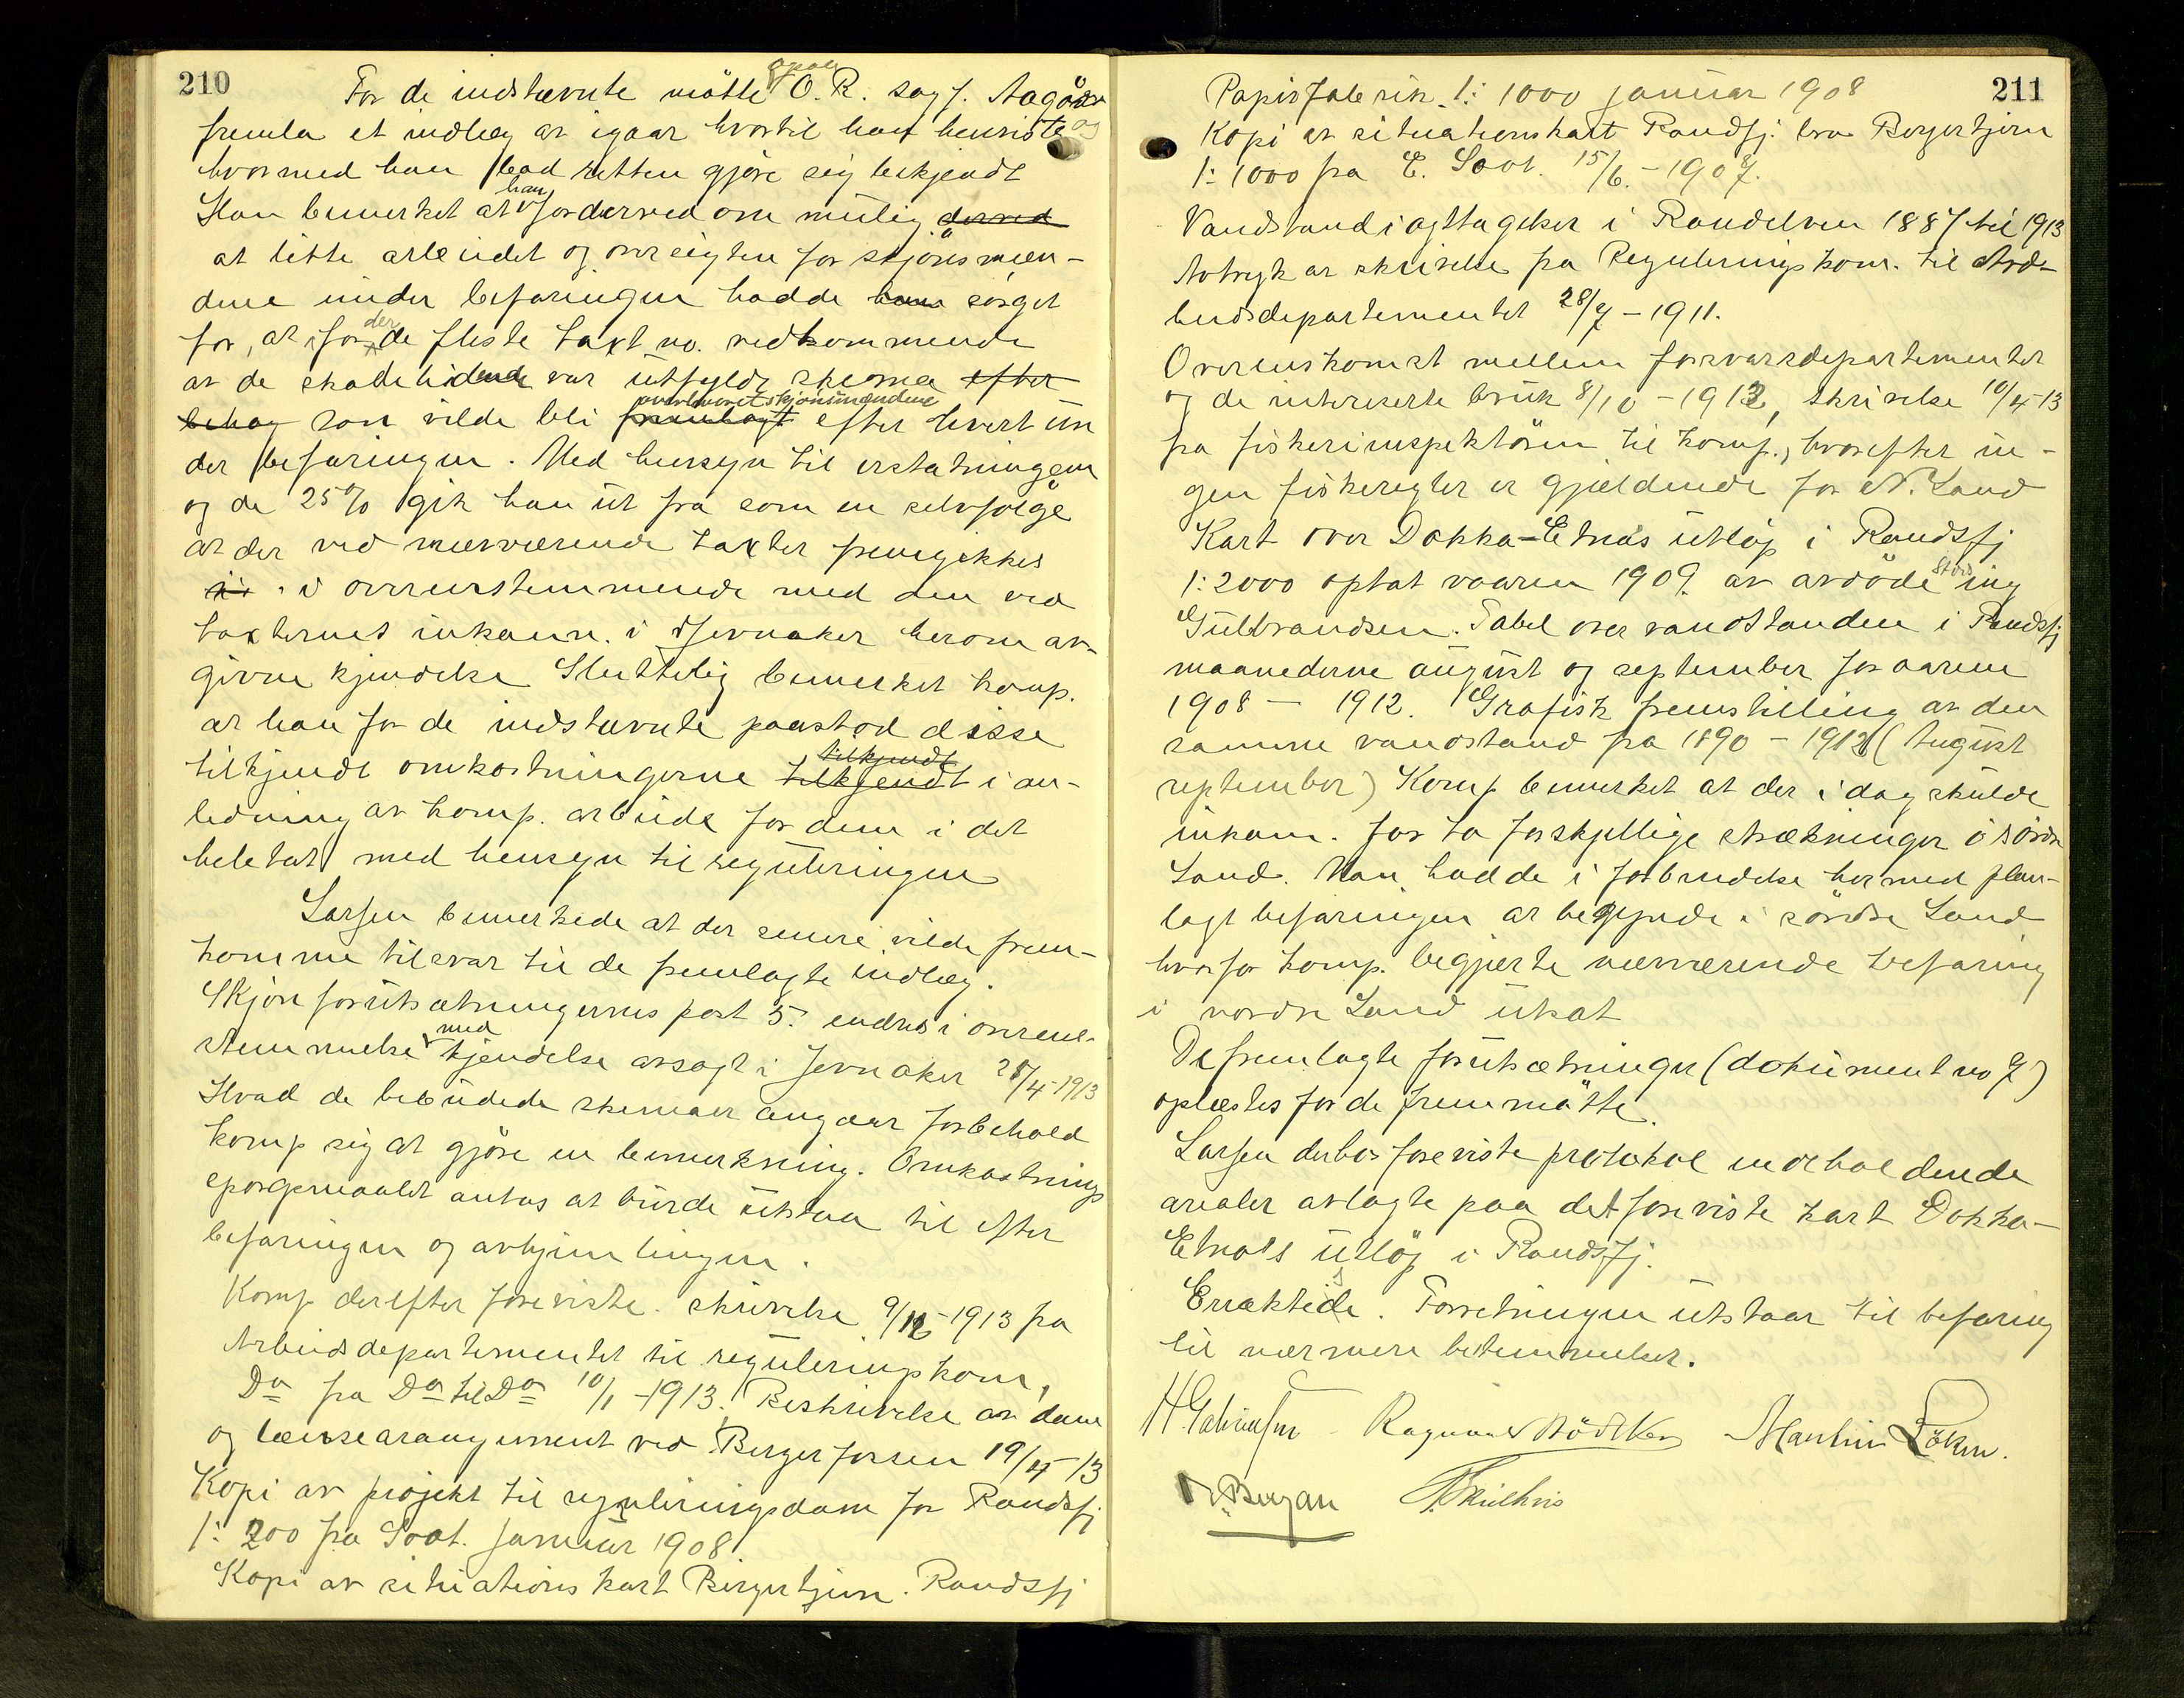 210
For de indstevnte møtte O.R. sagf. Aagaar
fremla et indlæg av igaar hvortil han henviste og
hvormed han bad retten gjøre sig bekjendt
Han bemerket at han forderved om mulig derved
at lette arbeidet og oversigten for skjønsmæn-
dene under befaringen hadde han sørget
for, at for der de fleste takst no. vedkommende
av de skadelidende var utfyldt skema efter
behag som vilde bli overleveret skjønsmændene fremlagt efter hvert un
der befaringen. Med hensyn til erstatningen
og de 25% gik han ut fra som en selvfølge
at der ved nærværende takster fremgikkes
i overensstemmende med den ved
taksternes inkaun. i Jevnaker herom av-
givne kjendelse Sluttelig bemerket komp.
at han for de indstevnte paastod disse
tilkjendt omkostningerne tilkjendt tilkjendt i an-
ledning av komp. arbeide for dem i det
heletat med hensyn til reguleringen
Larsen bemerkede at der senere vilde frem-
komme tilsvar til de fremlagte indlæg.
Skjønforutsætningernes post 5. endres i overens-
stemmelse med kjendelse avsagt i Jevnaker 28/4-1913
Hvad de bebudede skemaer angaar forbeholdt
komp sig at gjøre en bemerkning. Omkostnings
spørgsmaalet antas at burde utstaa til efter
befaringen og avhjemlingen.
Komp derefter foreviste skrivelse 9/12-1913 fra
Arbeidsdepartementet til reguleringskom,
Do fra Do til Do 10/1-1913. Beskrivelse av dam
og lænsearangement ved Bergerfossen 19/4-13
Kopi av projekt til reguleringsdam for Randsfj
1: 200 fra Soot. Januar 1908
Kopi av situationskart Bergertjern. Randsfj
211
Papirfabrik 1: 1000 januar 1908
Kopi av situationskart Randsfj. bro Bergertjern
1: 1000 fra E. Soot. 15/6.-1907.
Vandstandiagttagelser i Randelven 1887 til 1913
Avtryk av skrivelse fra Reguleringskom. til Arbe-
beidsdepartementet 28/7-1911.
Overenskomst mellem forsvarsdepartementet
og de intereserte bruk 8/10-1912, skrivelse 10/4-13
fra fiskeriinspektøren til komp., hvorefter in-
gen fiskeregler er gjældende for N. Land
Kart over Dokka-Etnas utløp i Randsfj
1:2000 optat vaaren 1909 av avdøde Stois ing
Gulbrandsen. Tabel over vandstanden i Randsfj
maanederne august og september for aarene
1908 - 1912. Grafisk fremstilling av den
samme vandstand fra 1890 - 1912 (August
september) Komp bemerket at der i dag skulde
inkom. for to forskjellige strækninger i søndre
Land. Man hadde i forbindelse hermed plan-
lagt befaringen at begynde i søndre Land
hvorfor komp. begjærte nærværende befaring
i nordre Land utsat
De fremlagte forutsætninger (dokument no 7)
oplæstes for de fremmøtte.
Larsen derhos foreviste protokol indeholdende
arealer avlagte paa det foreviste kart Dokka-
Etnas utløp i Randsfj.
Eraktede. Forretningen utstaar til befaring
til nærmere bestemmelser.
Ragnvald Bødtker Martin Løken.